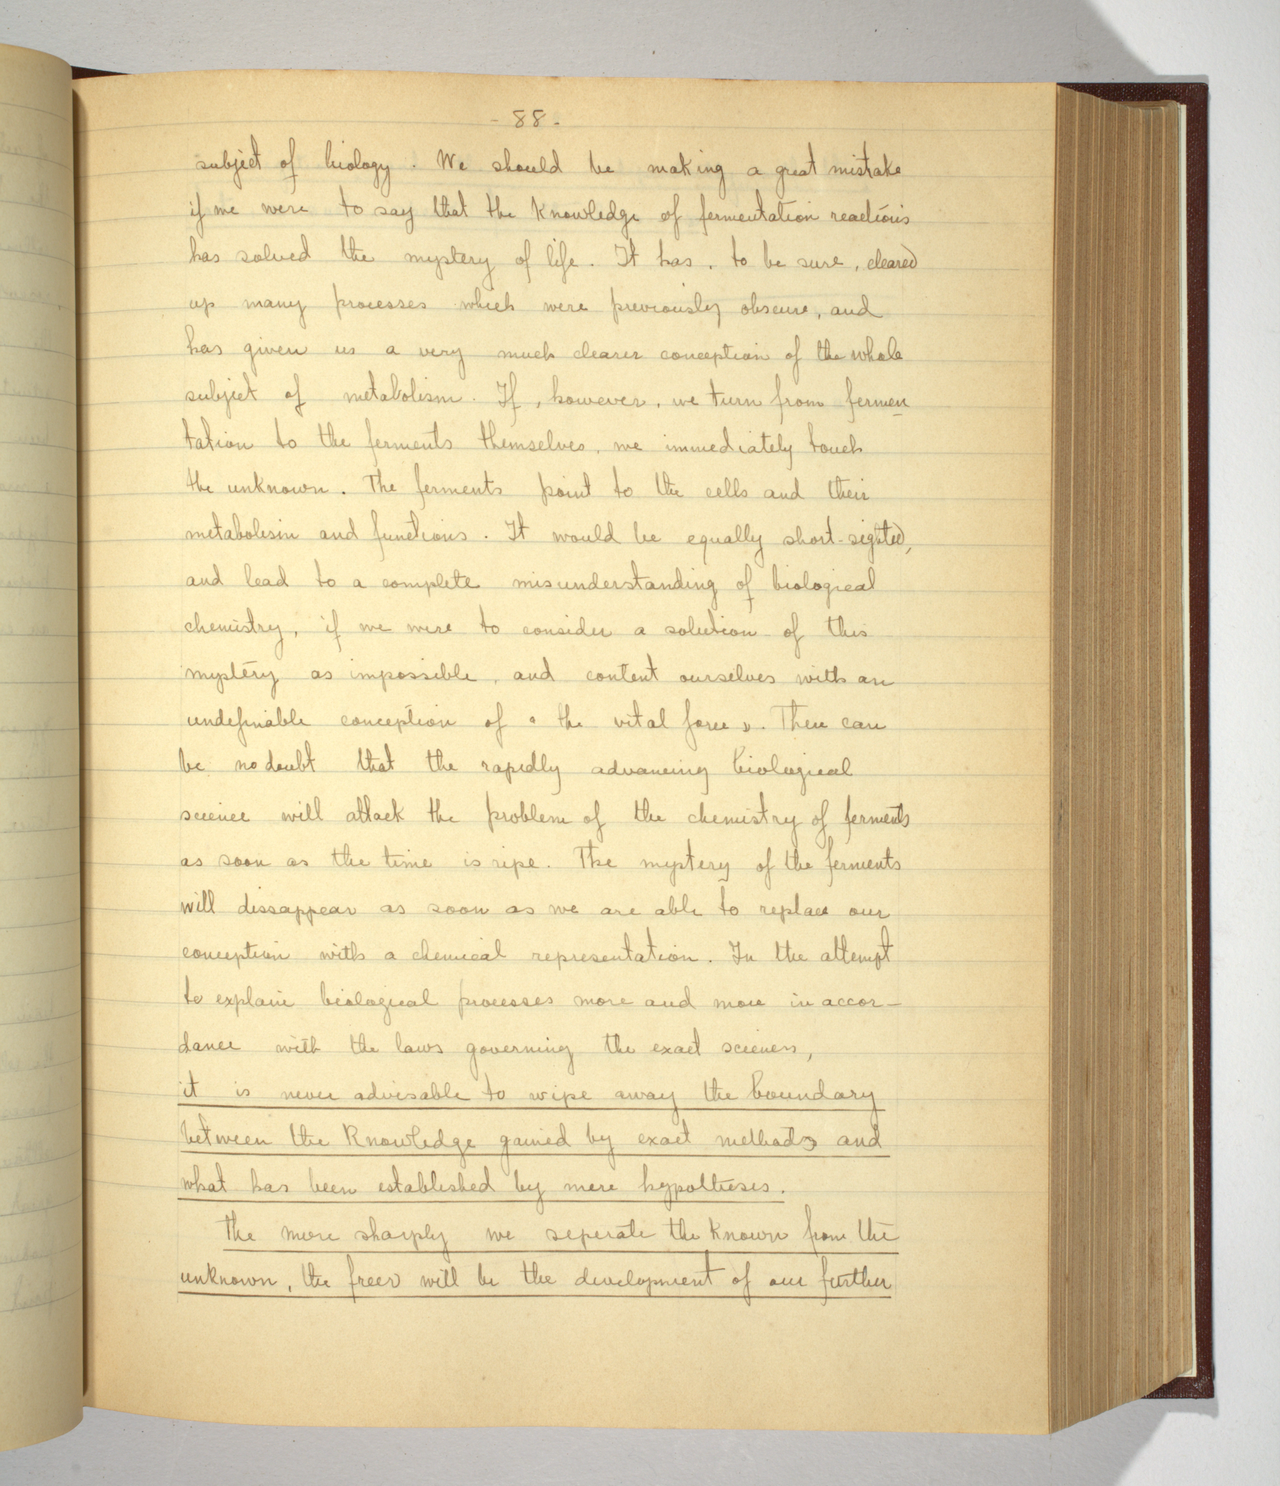 - 88 -
subject of biology. We should be making a great mistake
if we were to say that the knowledge of fermentation reactions
has solved the mystery of life. It has, to be sure, cleared
up many processes which were previously obscure, and
has given us a very much clearer conception of the whole
subject of metabolism. If, however, we turn from fermen
tation to the ferments themselves, we immediately touch
the unknown. The ferments point to the cells and their
metabolism and functions. It would be equally short-sighted,
and lead to a complete misunderstanding of biological
chemistry, if we were to consider a solution of this
mystery as impossible, and content ourselves with an
undefinable conception of « the vital force ». There can
be no doubt that the rapidly advancing biological
science will attack the problem of the chemistry of ferments
as soon as the time is ripe. The mystery of the ferments
will dissappear as soon as we are able to replace our
conception with a chemical representation. In the attempt
to explain biological processes more and more in accor-
dance with the laws governing the exact sciences,
it is never advisable to wipe away the boundary
between the Knowledge gained by exact methods and
what has been established by mere hypothesis.
The more sharply we seperate the known from the
unknown, the freer will be the development of our further